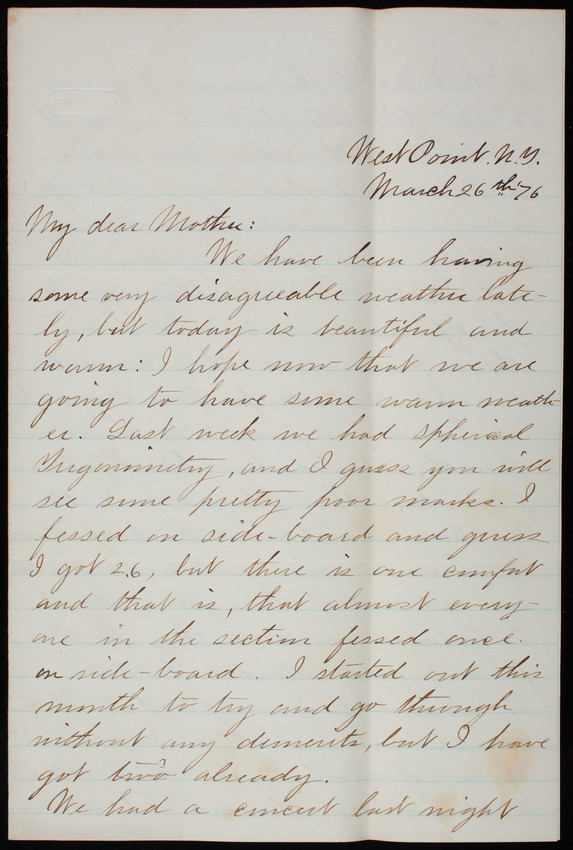 West Point. N.Y.
March 26th 76
My dear Mother:
We have been having
some very disagreeable weather late-
ly, but today is beautiful and
warm: I hope now that we are
going to have some warm weath-
er. Last week we had Spherical
Trigonimetry, and I guess you will
see some pretty poor marks. I
fessed on side-board and guess
I got 2.6, but there is one comfort
and that is, that almost every-
one in the section fessed once
on side-board. I started out this
month to try and go through
without any demerits, but I have
got two 3 already.
We had a concert last night